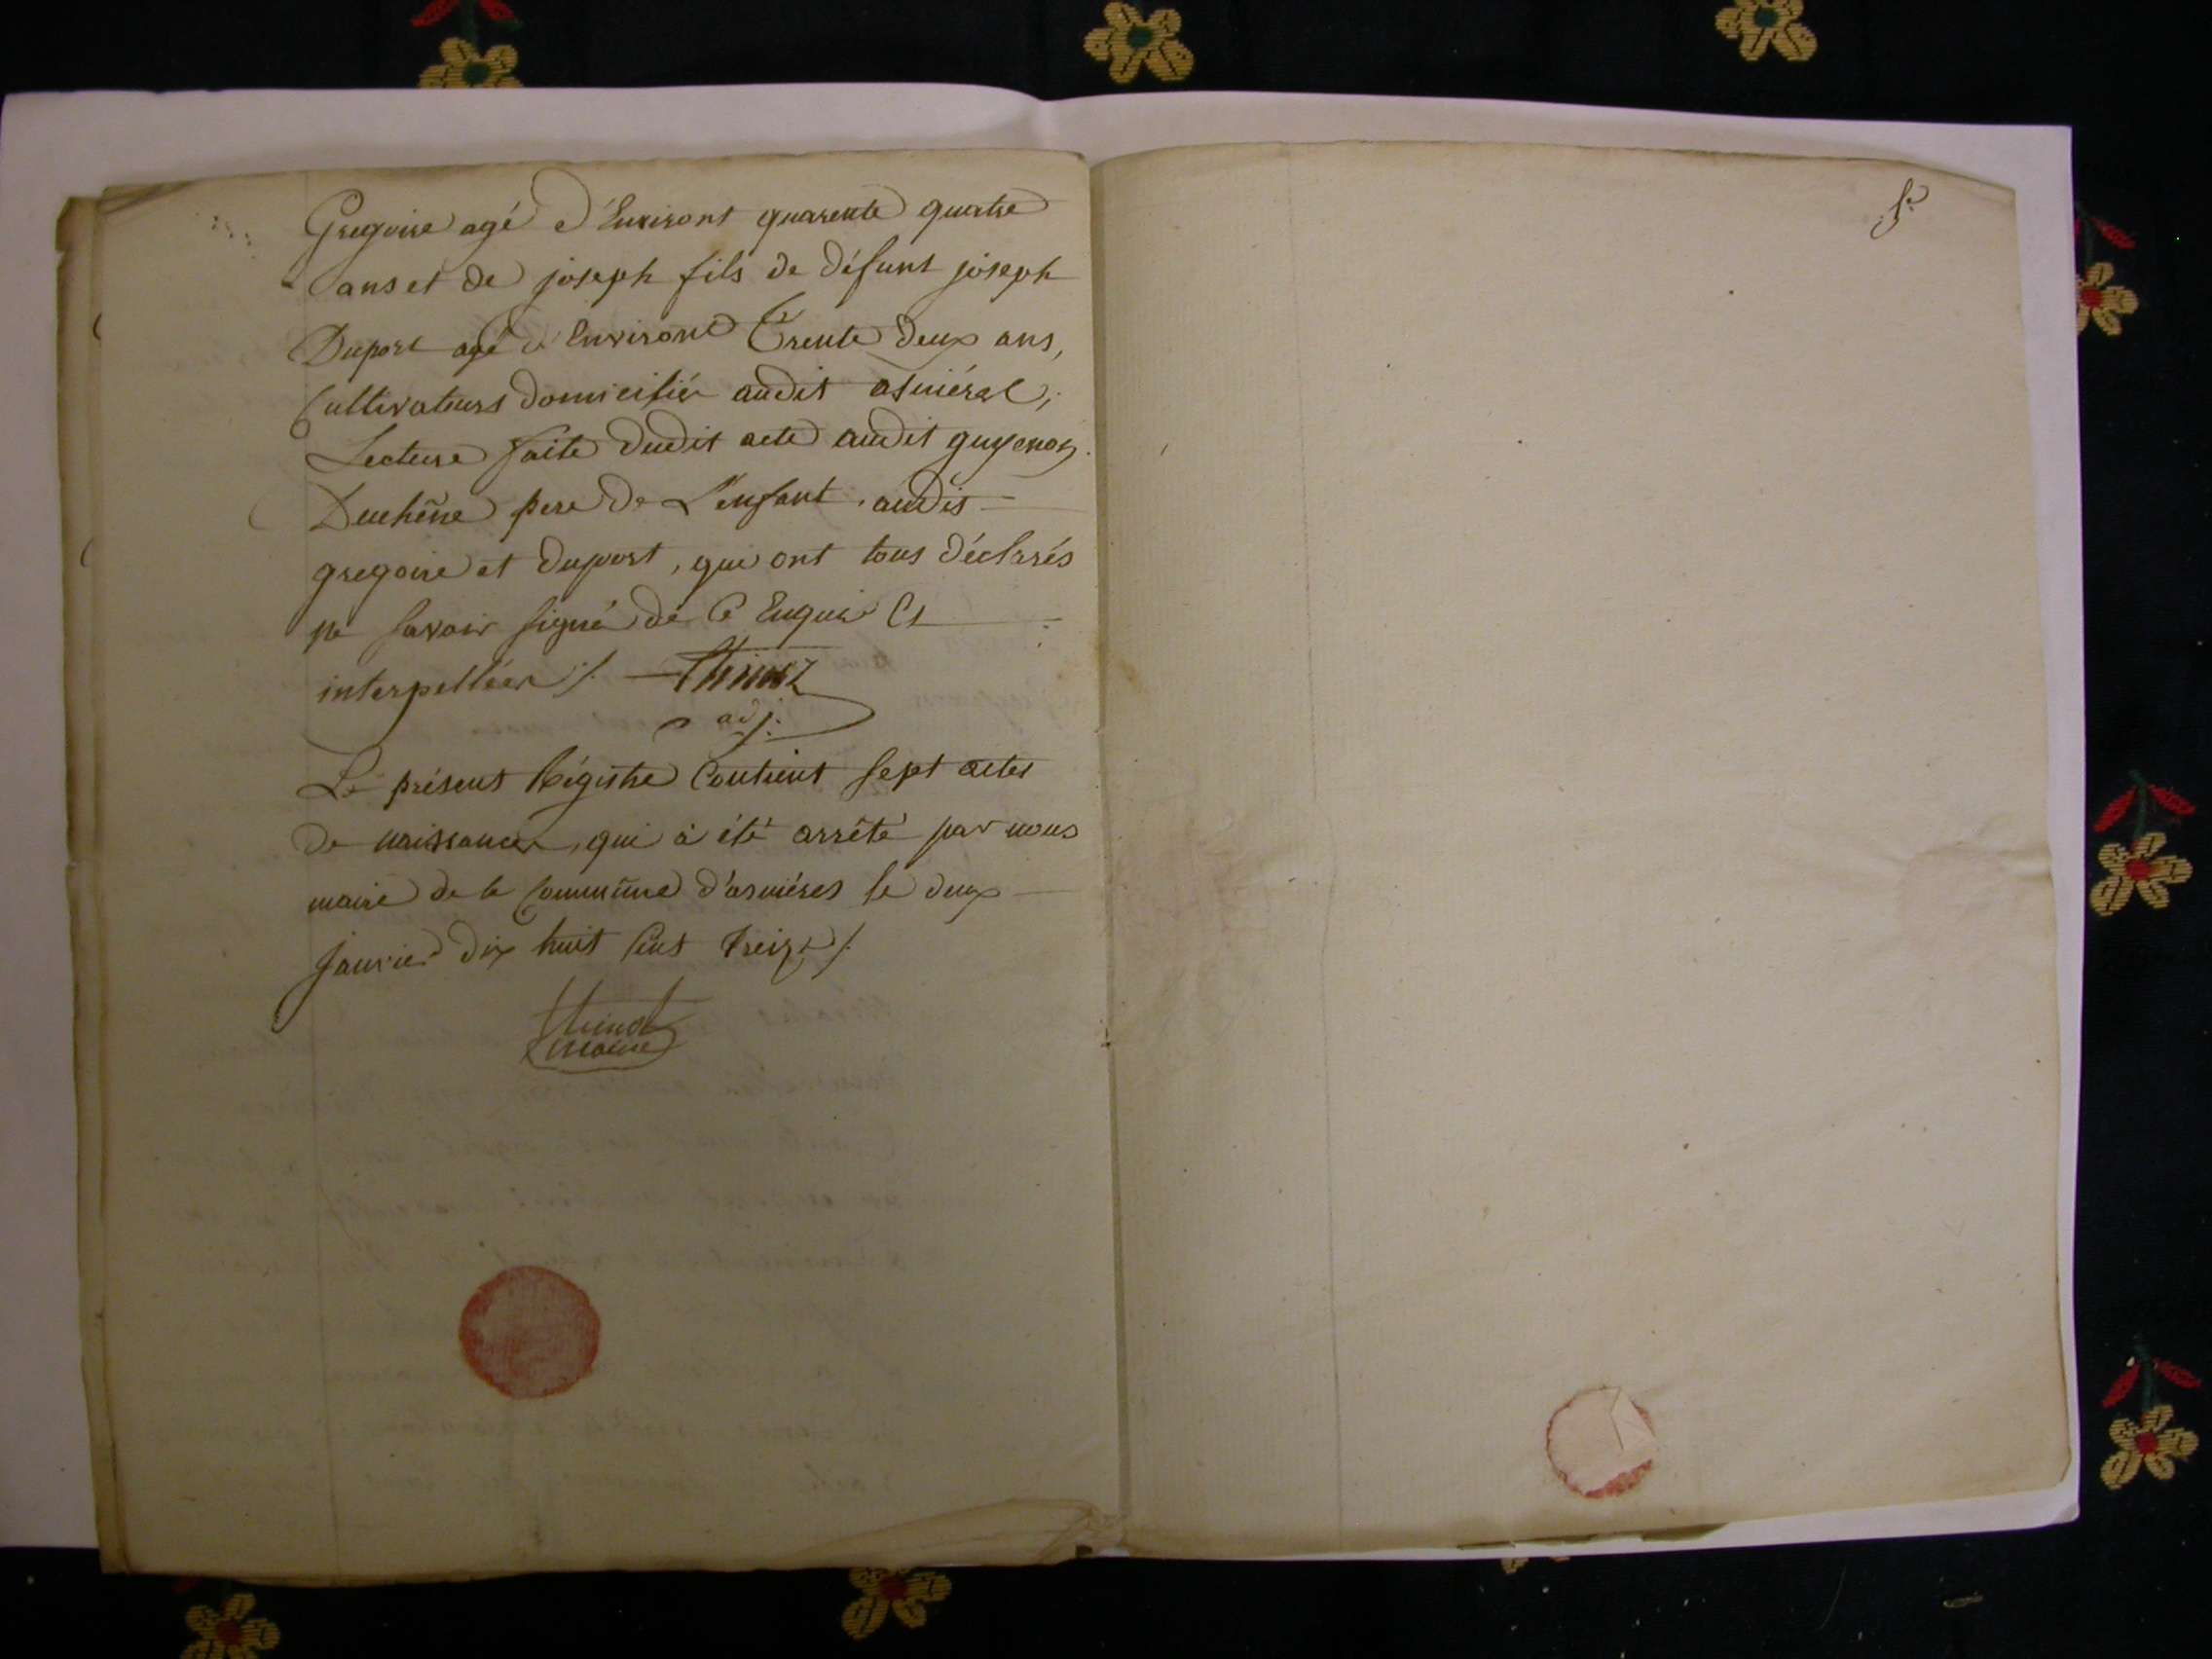 Gregoire agé d'Environt quarente quatre
ans et de joseph fils de défunt joseph
Duport agé d'Environt Trente deux ans,
Cultivateurs domiciliés audit asniéres,
Lecture faite dudit acte audit guyenot
Duchêne pere de L'enfant, audis
gregoire et duport, qui ont tous déclarés
ne savoir signé de ce Enquis Et
interpellées /.
adj.
Le présent Régistre Contient sept actes
de naissances, qui à été arrêté par nous
maire de la Commune d'asniéres le deux
Janvier dix huit Cent treize /.
maire